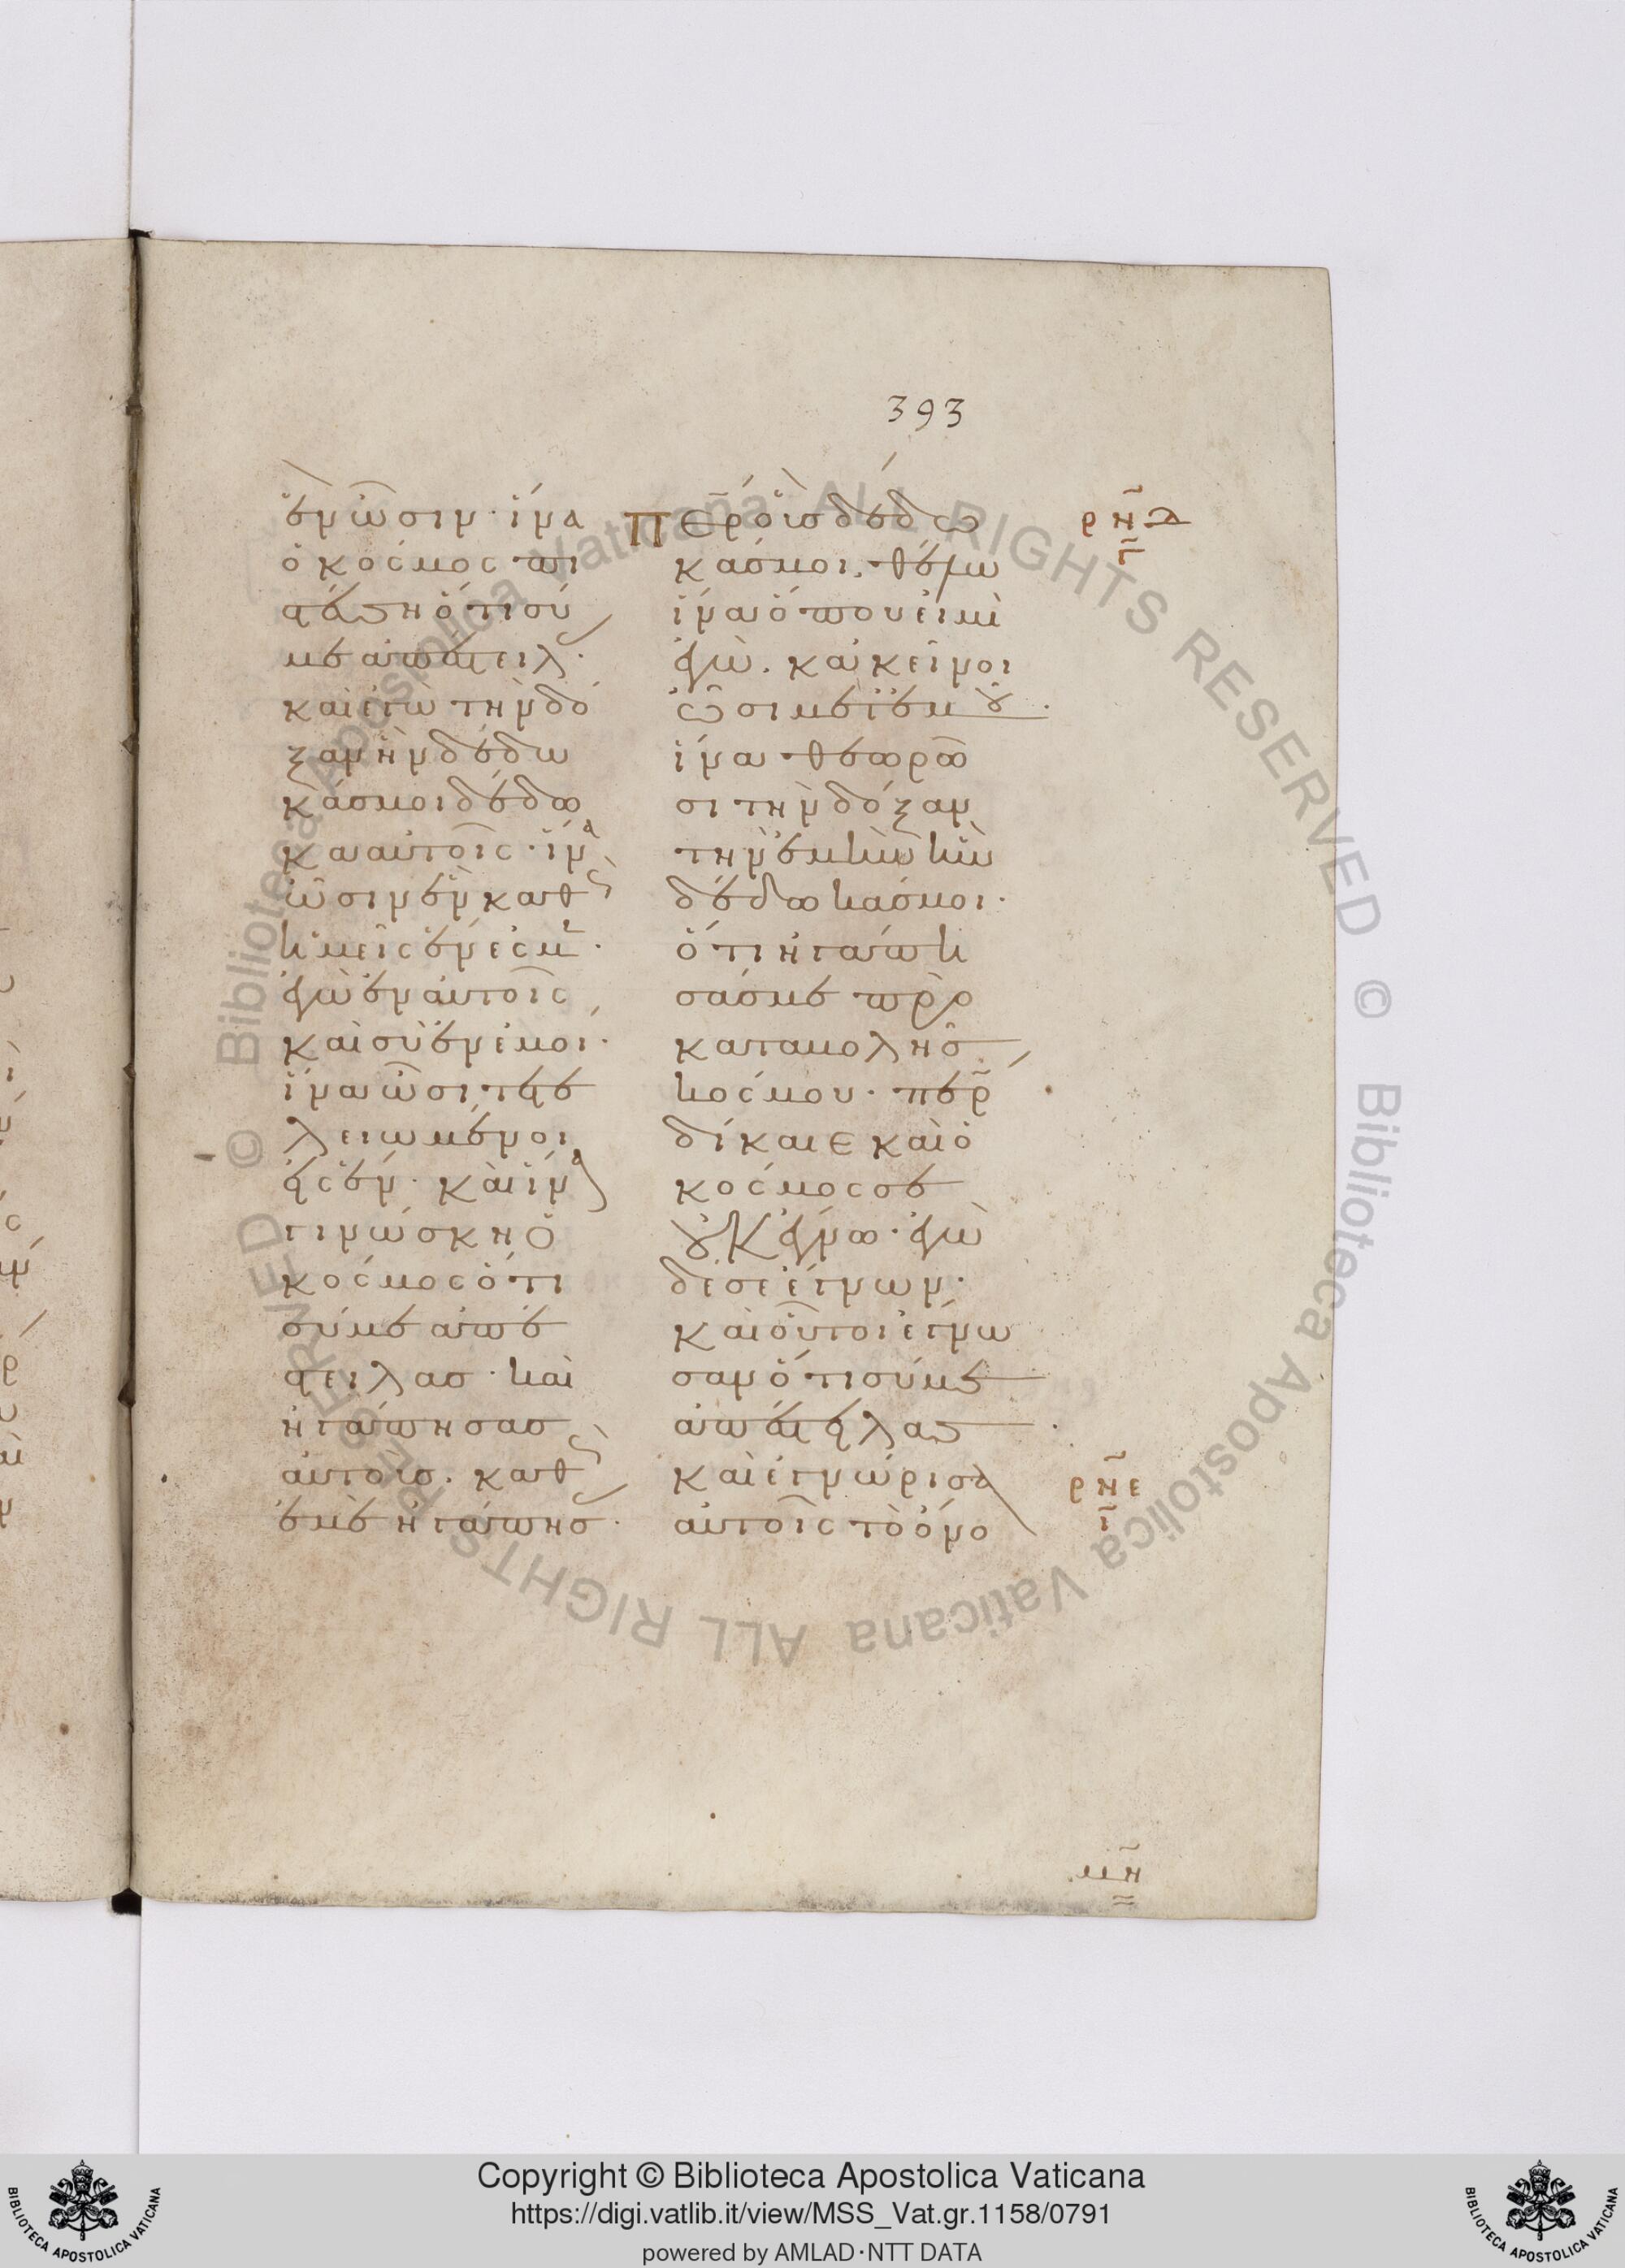 393
ἓν ὦσιν· ἵνα
ὁ κόσμος πι
στεύση ὅτι σύ
με ἀπέστειλ·
καὶ ἐγὼ τὴν δό
ξαν ἣν δέδω
κάσ μοι δέδω
κα αὐτοῖς· ἵνα
ὦσιν ἓν καθ
ἡμεῖς ἕν ἐσμ·
ἐγὼ ἐν αὐτοῖς
καὶ σὺ ἐν ἐμοί·
ἵνα ὦσι τετε
λειωμένοι
εἰς ἕν· καὶ ἵνα
γινώσκη ὁ
κόσμος ὅτι
σύ με ἀπέ
στειλασ· καὶ
ἠγάπησασ
αὐτοὺσ· καθ
ἐμὲ ἠγάπησ·
Περ οὓσ δέδω
κάσ μοι. θέλω
ἵνα ὅπου εἰμὶ
ἐγὼ. κἀκεῖνοι
ὦσι μετ ἐμοῦ·
ἵνα θεωρῶ
σι τὴν δόξαν
τὴν ἐμὴν ἣν
δέδωκάσ μοι·
ὅτι ἠγάπη
σάσ με πρὸ
καταβολῆσ
κόσμου· περ
δίκαιε καὶ ὁ
κόσμος σε
οὐκ ἔγνω· ἐγὼ
δέ σε ἔγνων·
καὶ οὗτοι ἔγνω
σαν ὅτι σύ με
ἀπέστειλας·
καὶ ἐγνώρισα
αὐτοῖς τὸ ὄνο
ρνδ
ρνε
Copyright © Biblioteca Apostolica Vaticana
https://digi.vatlib.it/view/MSS_Vat.gr.1158/0791
powered by AMLAD·NTT DATA
BIBLIOTECA APOSTOLICA VATICANA
BIBLIOTECA APOSTOLICA VATICANA
© Biblioteca Apostolica Vaticana ALL RIGHTS RESERVED © Biblioteca Apostolica Vaticana ALL RIGHTS RESERVED